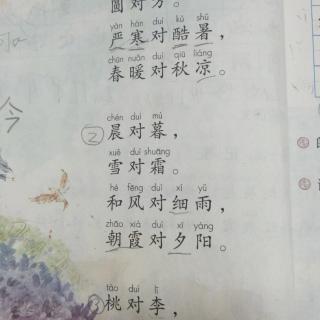 圆对方。
yán hán duì kù shǔ
严寒对酷暑，
chūn nuǎn duì qiū liáng
春暖对秋凉。
chén duì mù
②晨对暮，
xuě duì shuāng
雪对霜。
hé fēng duì xì yǔ
和风对细雨，
zhāo xiá duì xī yáng
朝霞对夕阳。
táo duì lǐ
③桃对李，
今